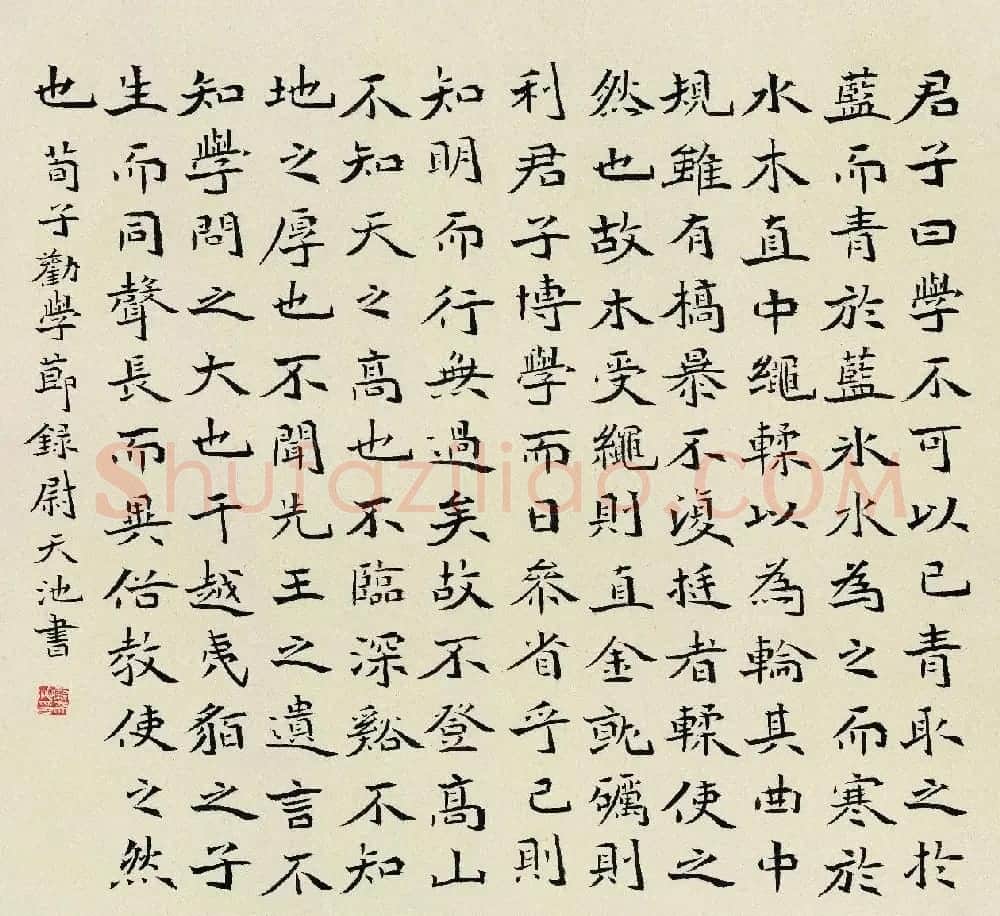 君子曰學不可以已青取之於
藍而青於藍氷水為之而寒於
水木直中繩輮以為輪其曲中
規雖有槁暴不復挺者輮使之
然也故木受繩則直金就礪則
利君子博學而日參省乎己則
知明而行無過矣故不登高山
不知天之高也不臨深谿不知
地之厚也不聞先王之遺言不
知學問之大也干越夷貊之子
生而同聲長而異俗教使之然
也 荀子勸學節録尉天池書
Shufaziliao.COM